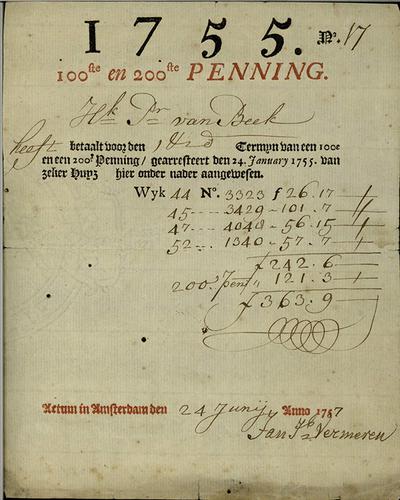 1755. No. 17
100ste en 200ste PENNING.
Hk Pr van Beek
heeft betaalt voor den Termyn van een 100e
en een 200e Penning / gearresteert den 24. January 1755. van
zeker Huyz hier onder nader aangewesen.
Wyk 44 No. 3323 f 26.17
45 3429 - 101.7
47 4048 - 56.15
52 1340 - 57.7
f 242.6
200e Penn 121.3
f 363.9
Actum in Amsterdam den 24 Junij Anno 1757
Jan Vermeren